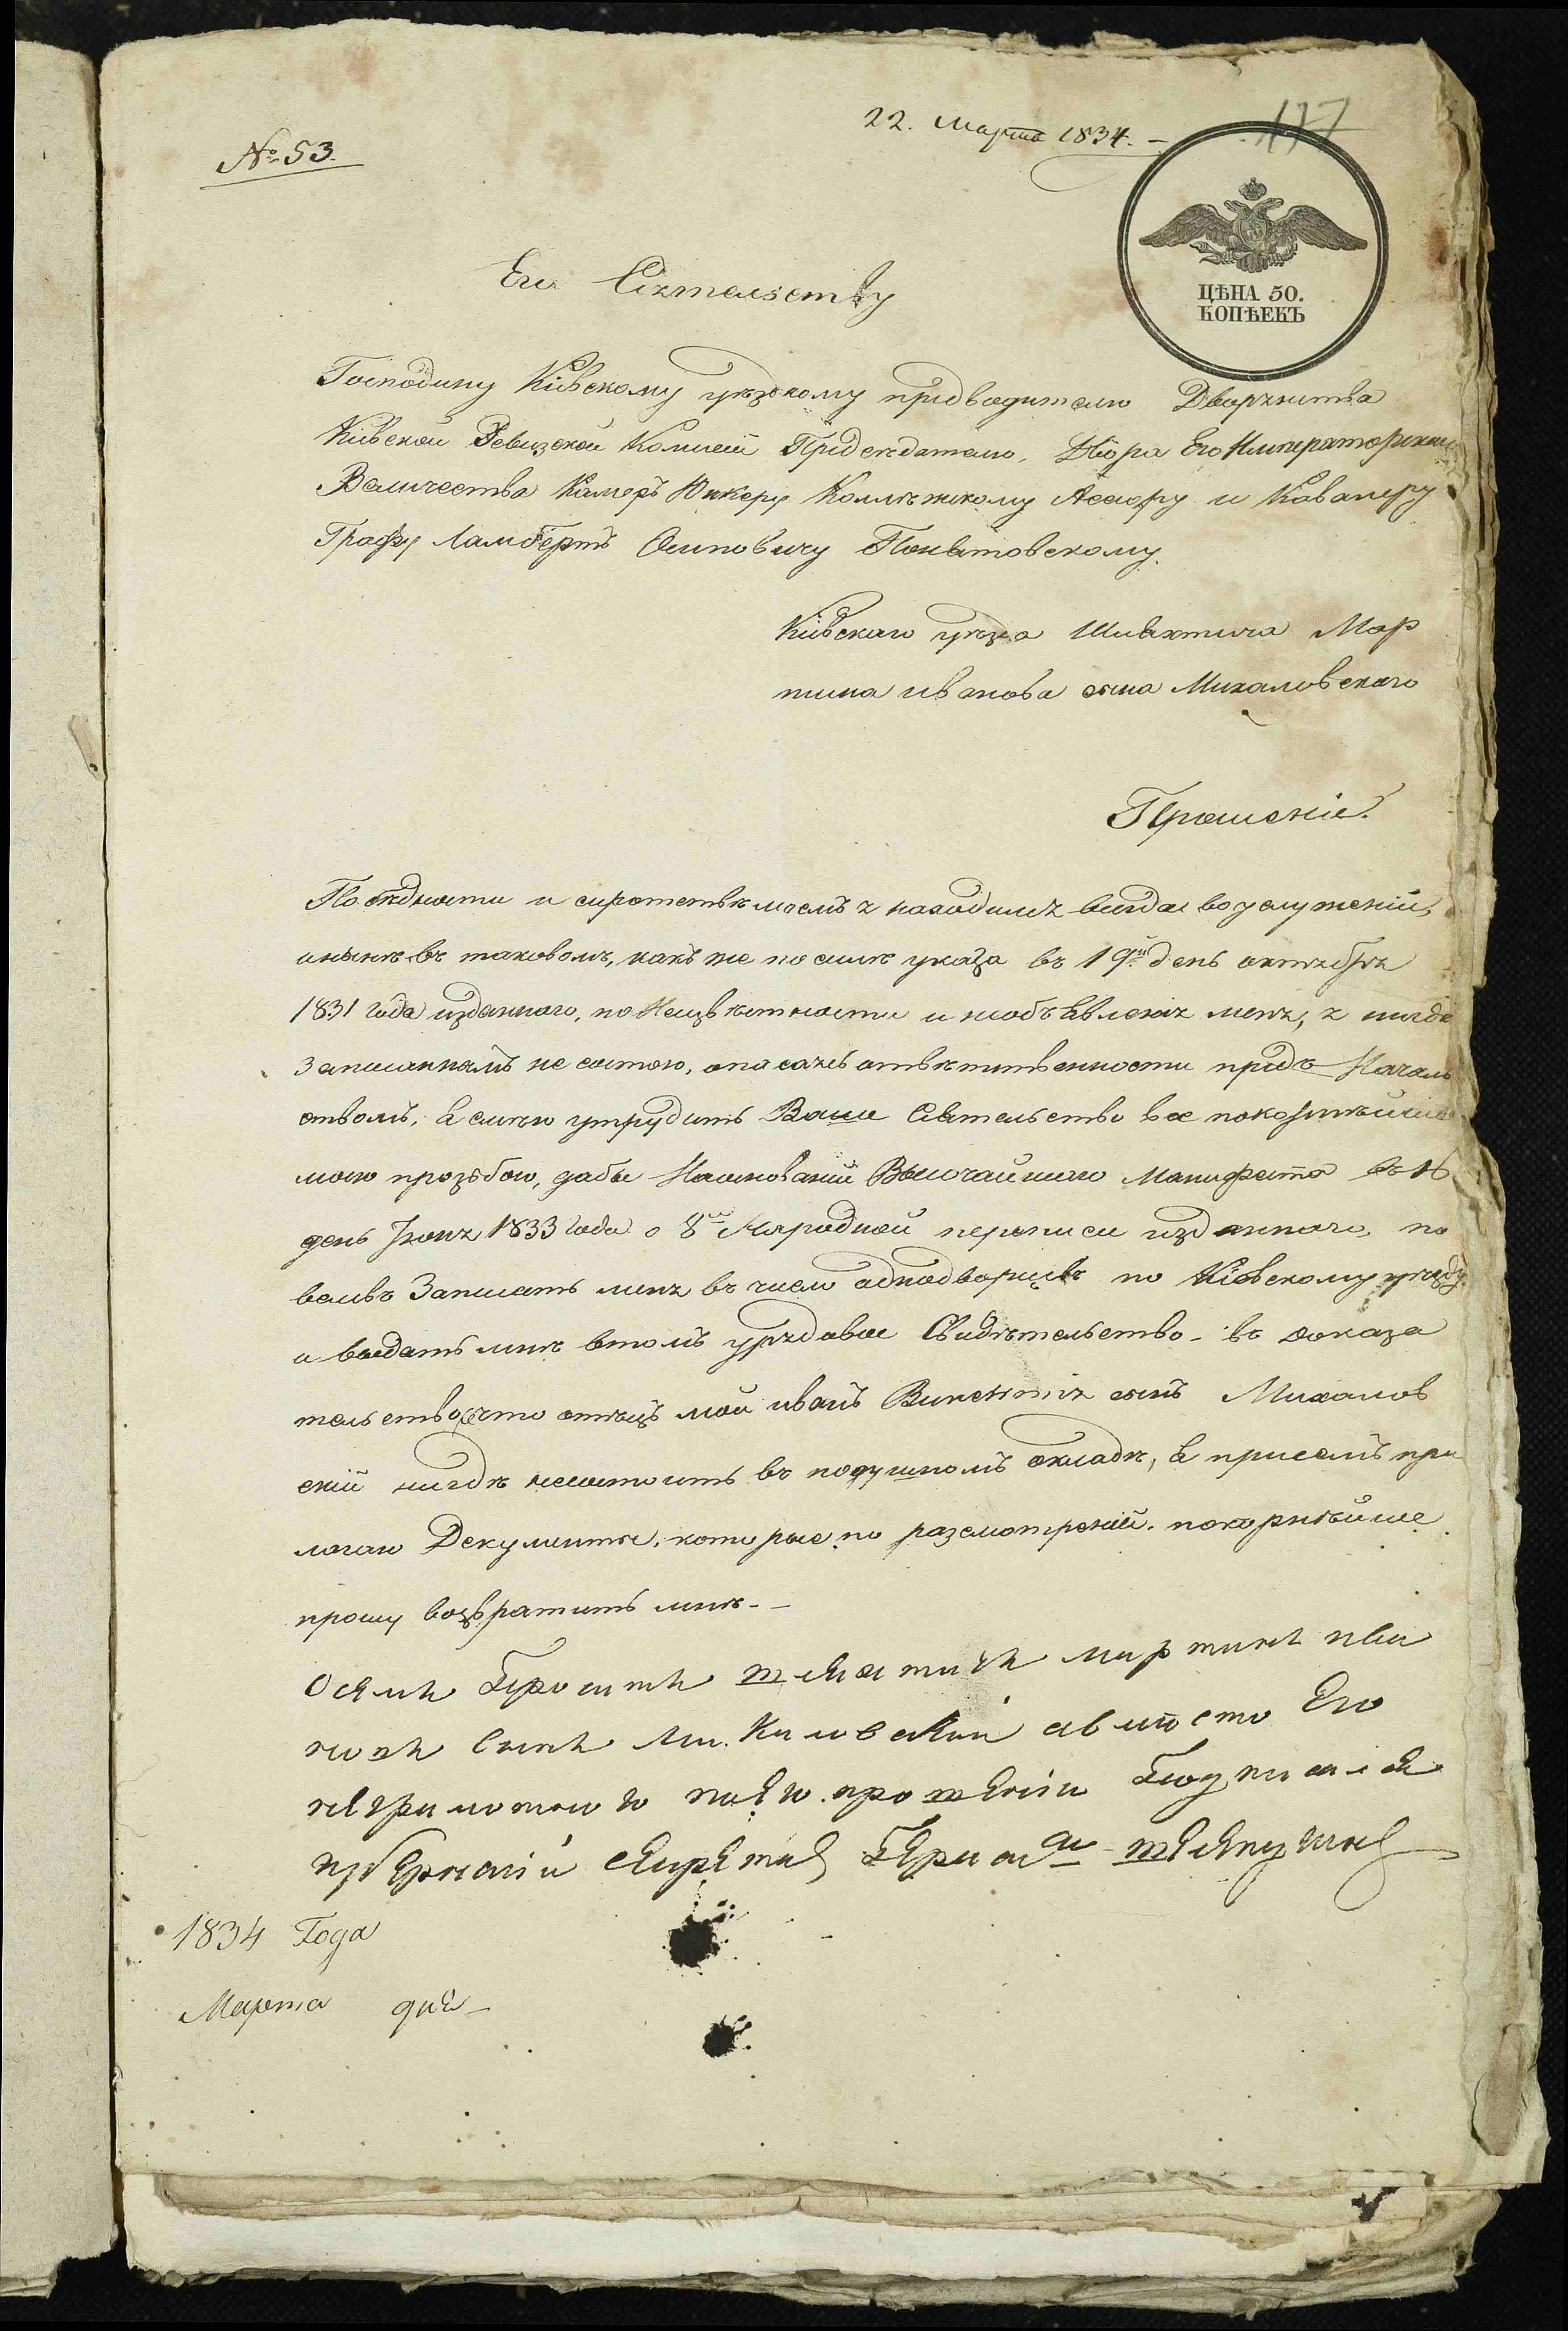 22. Марта 1834. –
177
№ 53.
ЦѢНА 50.
КОПѢЕКЪ
Его Сіятельству
Господину Кіевскому уѣздному предводителю Дворянства
Кіевской Ревизской Комисіи Предсѣдателю, Двора Его Императорскаго
Величества Камеръ Юнкеру Коллѣжскому Асесору и Кавалеру
Графу Ламбертъ Осиповичу Понятовскому.
Кіевскаго уѣзда Шляхтича Мар
тина Иванова сына Михаловскаго
Прошеніе.
По бѣдности и сиротствѣ моемъ я находился всегда во услуженіи,
и нынѣ въ таковомъ, какъ же по силѣ указа въ 19й день октября
1831 года изданнаго, по Неизвѣстности и необъявленія меня, я нигдѣ
Записаннымъ не состою, опасаясь отвѣтственности предъ Началь
ствомъ, я смѣю утрудить Ваше Сіятельство все покорнѣйшею
мою прозьбою, дабы На основаніи Высочайшаго Манифеста въ 16
день Іюня 1833 года о 8й Народной переписи изданнаго, по
велѣвъ Записать меня въ число однодворцевъ по Кіевскому уѣзду
и выдать мнѣ втомъ урядовое Свидѣтельство – въ доказа
тельство, что отецъ мой Иванъ сынъ Михалов
скій нигдѣ несостоитъ въ подушномъ окладѣ, я присемъ при
лагаю Документы, которые по разсмотреніи покорнѣйше
прошу возвратить мнѣ. –
Осемъ Проситъ шляхтичъ мартинъ ива
новъ Сынъ Михаловскій авмѣсто Его
неграмотного посѣю прошенію Подписался
губернскій секретарь
1834 Года
Марта дня –